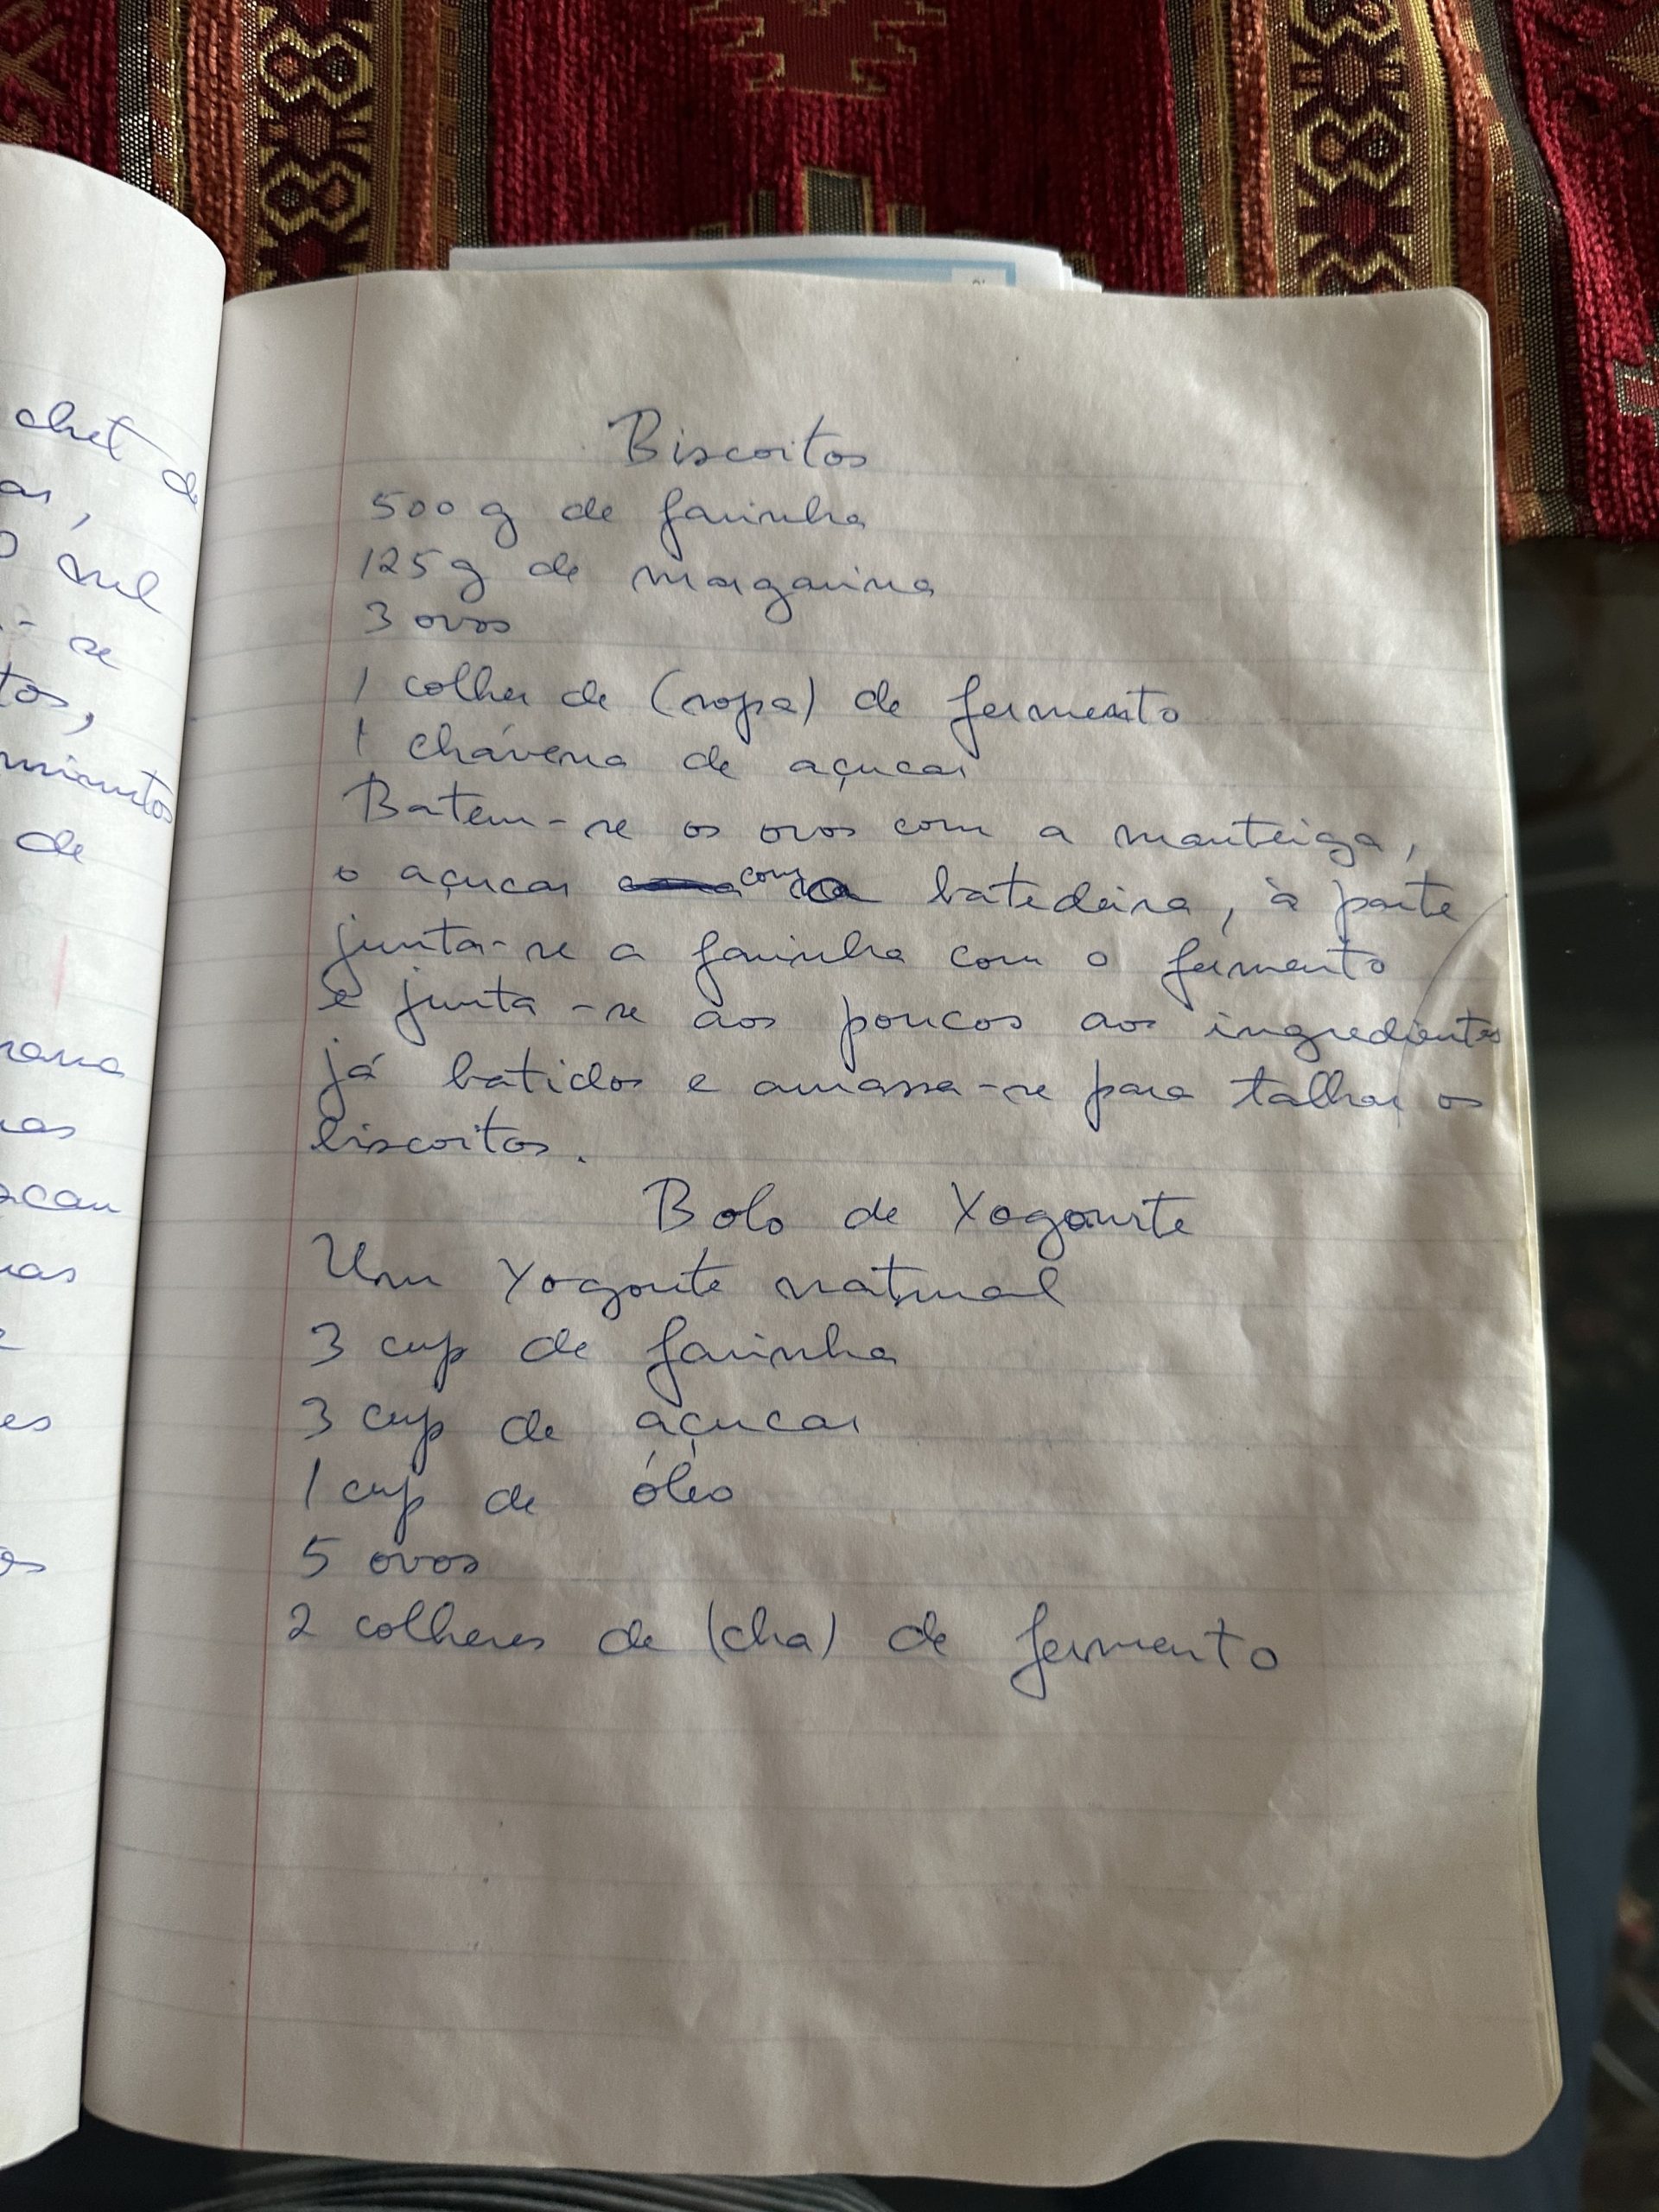 chet de
as,
sul
- se
tos,
mientos
de
as
es
os
Biscoitos
500 g de farinha
125 g de margarina
3 ovos
1 colher de (sopa) de fermento
1 chávena de açucar
Batem-se os ovos com a manteiga,
o açucar com a batedeira, à parte
junta-se a farinha com o fermento
e junta-se aos poucos aos ingredientes
já batidos e amassa-se para talhar os
biscoitos.
Bolo de Yogourte
Um Yogourte natural
3 cup de farinha
3 cup de açucar
1 cup de óleo
5 ovos
2 colheres de (cha) de fermento